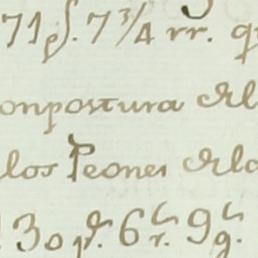 71 p.s 7 3/4 rr. q
onpostura del
los Peones dela
30 p.s 6 r.s 9 g.s